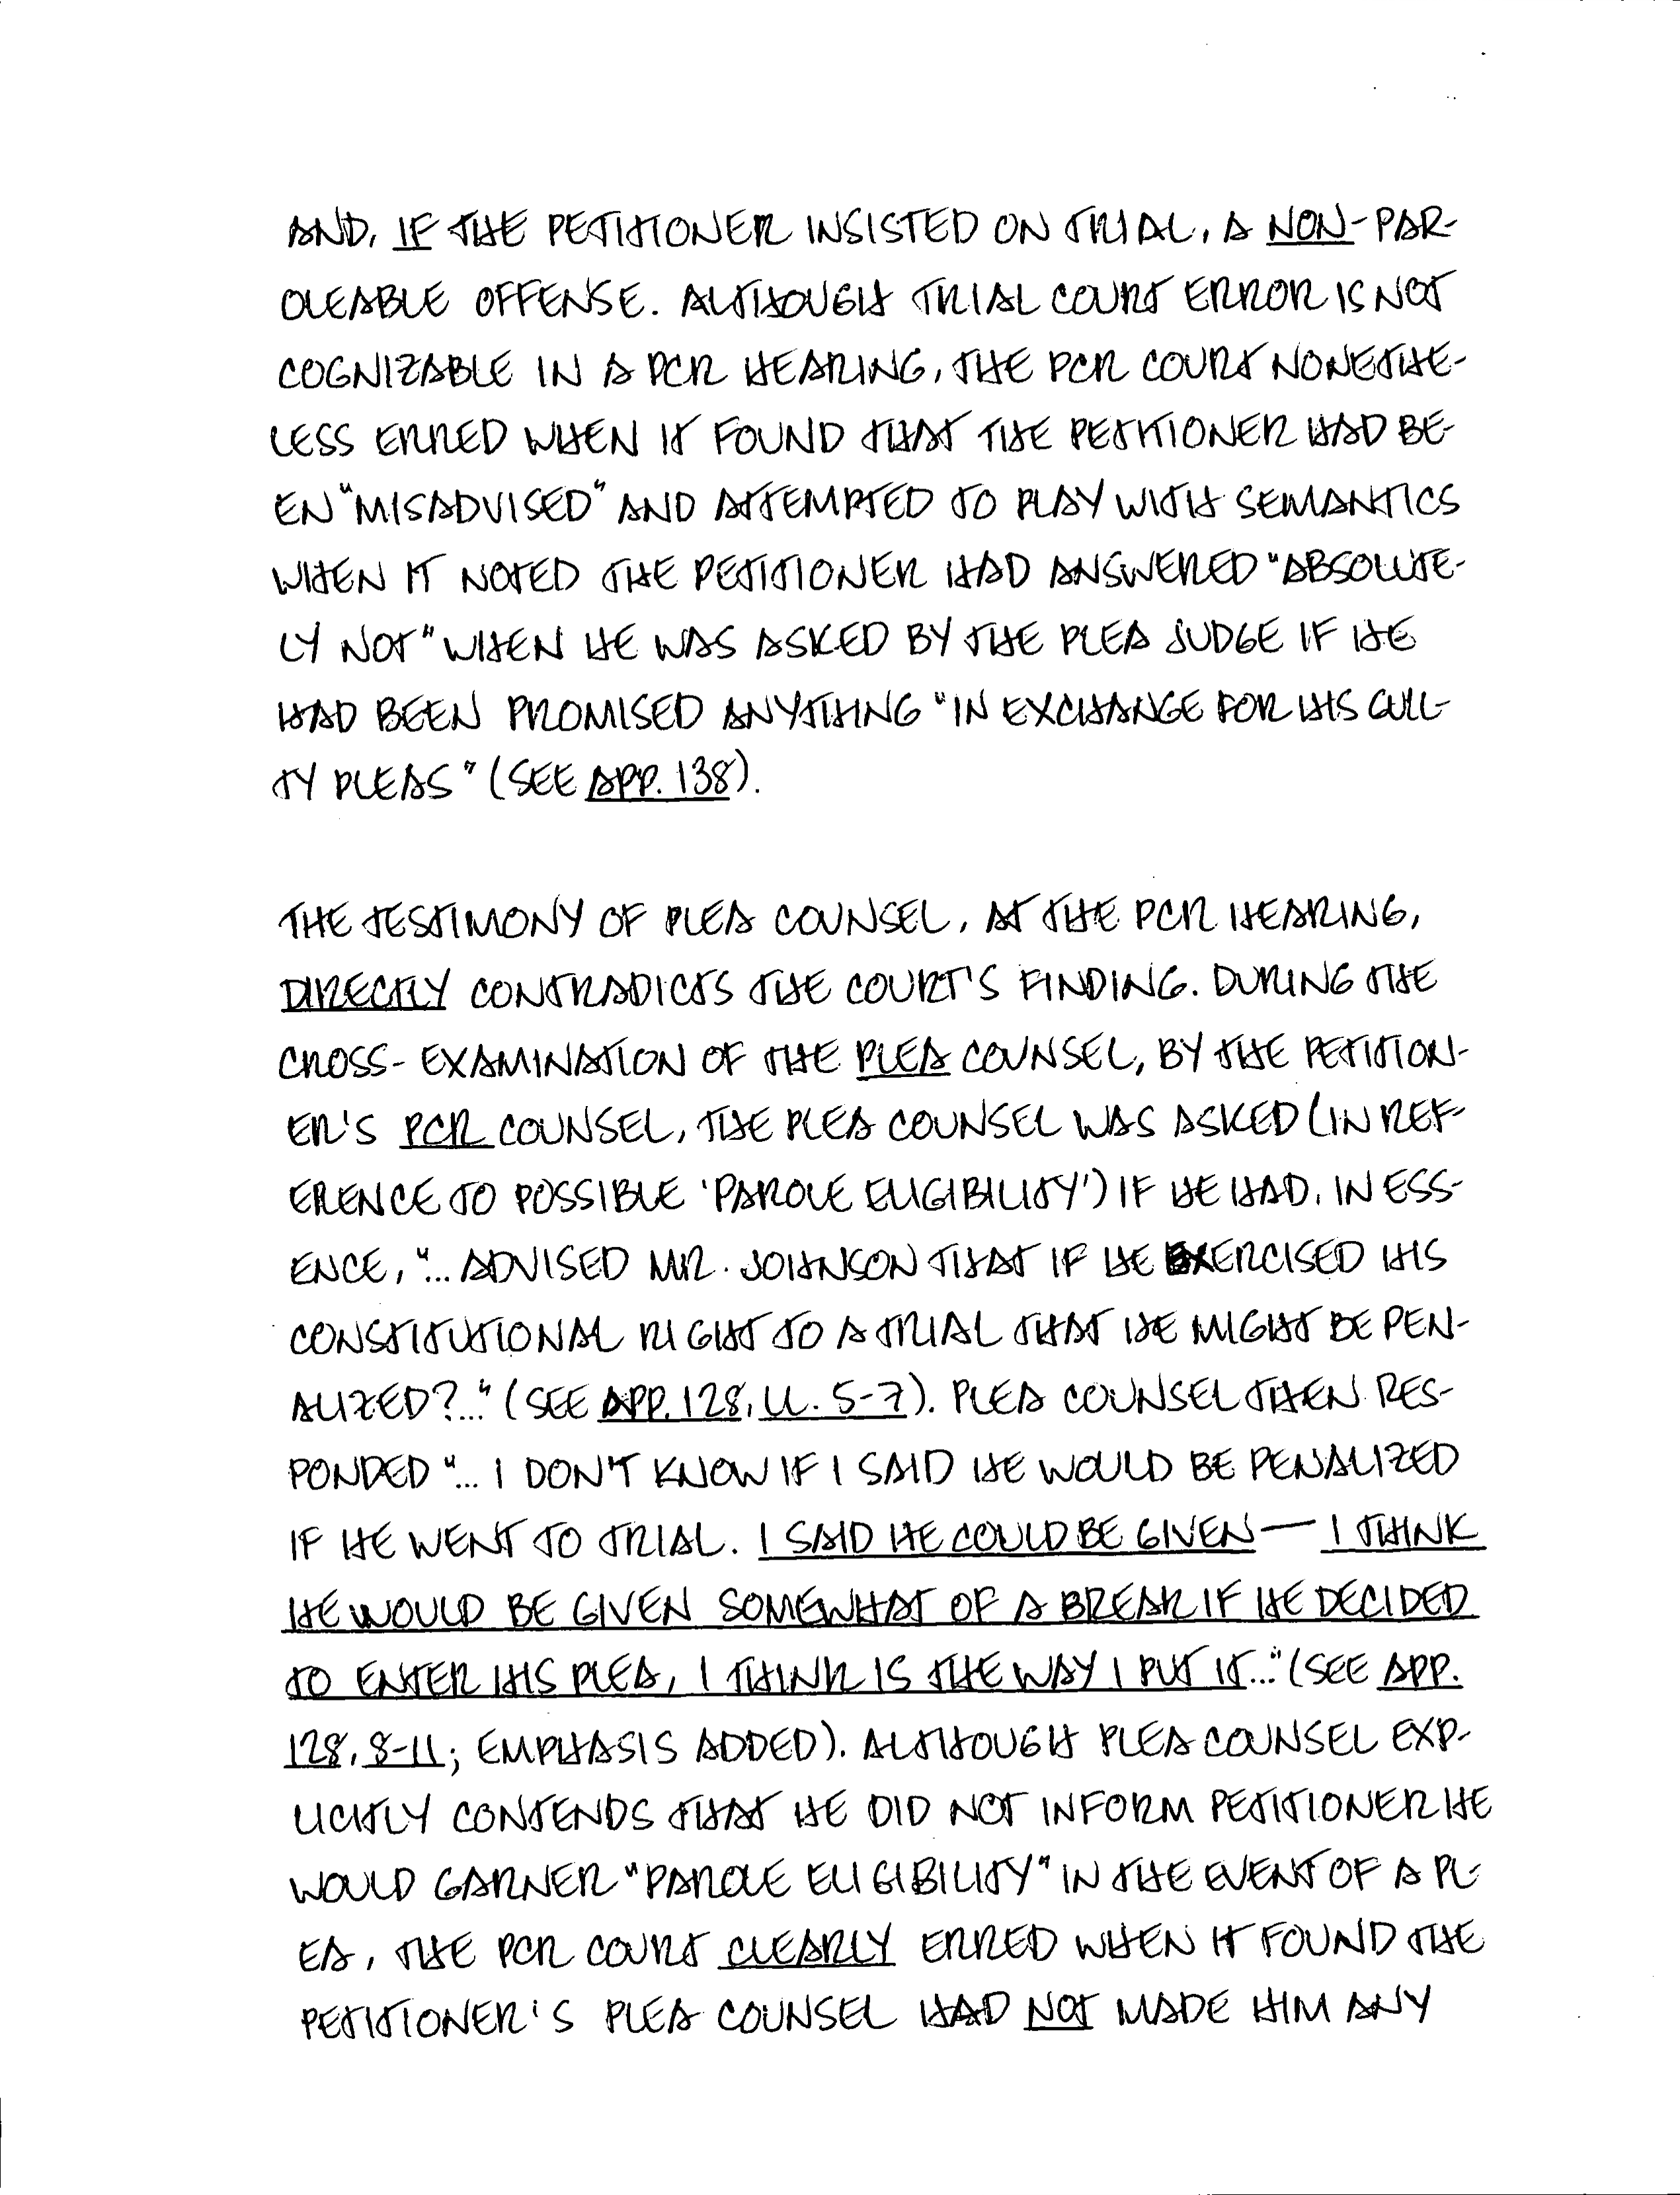 AND, IF THE PETITIONER INSISTED ON TRIAL, A NON-PAR-
OLEABLE OFFENSE. ALTHOUGH TRIAL COURT ERROR IS NOT
COGNIZABLE IN A PCR HEARING, THE PCR COURT NONETHE-
LESS ERRED WHEN IT FOUND THAT THE PETITIONER HAD BE-
EN "MISADVISED" AND ATTEMPTED TO PLAY WITH SEMANTICS
WHEN IT NOTED THE PETITIONER HAD ANSWERED "ABSOLUTE-
LY NOT" WHEN HE WAS ASKED BY THE PLEA JUDGE IF HE
HAD BEEN PROMISED ANYTHING "IN EXCHANGE FOR HIS GUIL-
TY PLEAS" (SEE APP. 138).
THE TESTIMONY OF PLEA COUNSEL, AT THE PCR HEARING,
DIRECTLY CONTRADICTS THE COURT'S FINDING. DURING THE
CROSS-EXAMINATION OF THE PLEA COUNSEL, BY THE PETITION-
ER'S PCR COUNSEL, THE PLEA COUNSEL WAS ASKED (IN REF-
ERENCE TO POSSIBLE 'PAROLE ELIGIBILITY') IF HE HAD, IN ESS-
ENCE, "... ADVISED MR. JOHNSON THAT IF HE EXERCISED HIS
CONSTITUTIONAL RIGHT TO A TRIAL THAT HE MIGHT BE PEN-
ALIZED?..." (SEE APP. 128, LL. 5-7). PLEA COUNSEL THEN RES-
PONDED "... I DON'T KNOW IF I SAID HE WOULD BE PENALIZED
IF HE WENT TO TRIAL. I SAID HE COULD BE GIVEN — I THINK
HE WOULD BE GIVEN SOMEWHAT OF A BREAK IF HE DECIDED
TO ENTER HIS PLEA, I THINK IS THE WAY I PUT IT..." (SEE APP.
128, 8-11; EMPHASIS ADDED). ALTHOUGH PLEA COUNSEL EXP-
LICITLY CONTENDS THAT HE DID NOT INFORM PETITIONER HE
WOULD GARNER "PAROLE ELIGIBILITY" IN THE EVENT OF A PL-
EA, THE PCR COURT CLEARLY ERRED WHEN IT FOUND THE
PETITIONER'S PLEA COUNSEL HAD NOT MADE HIM ANY